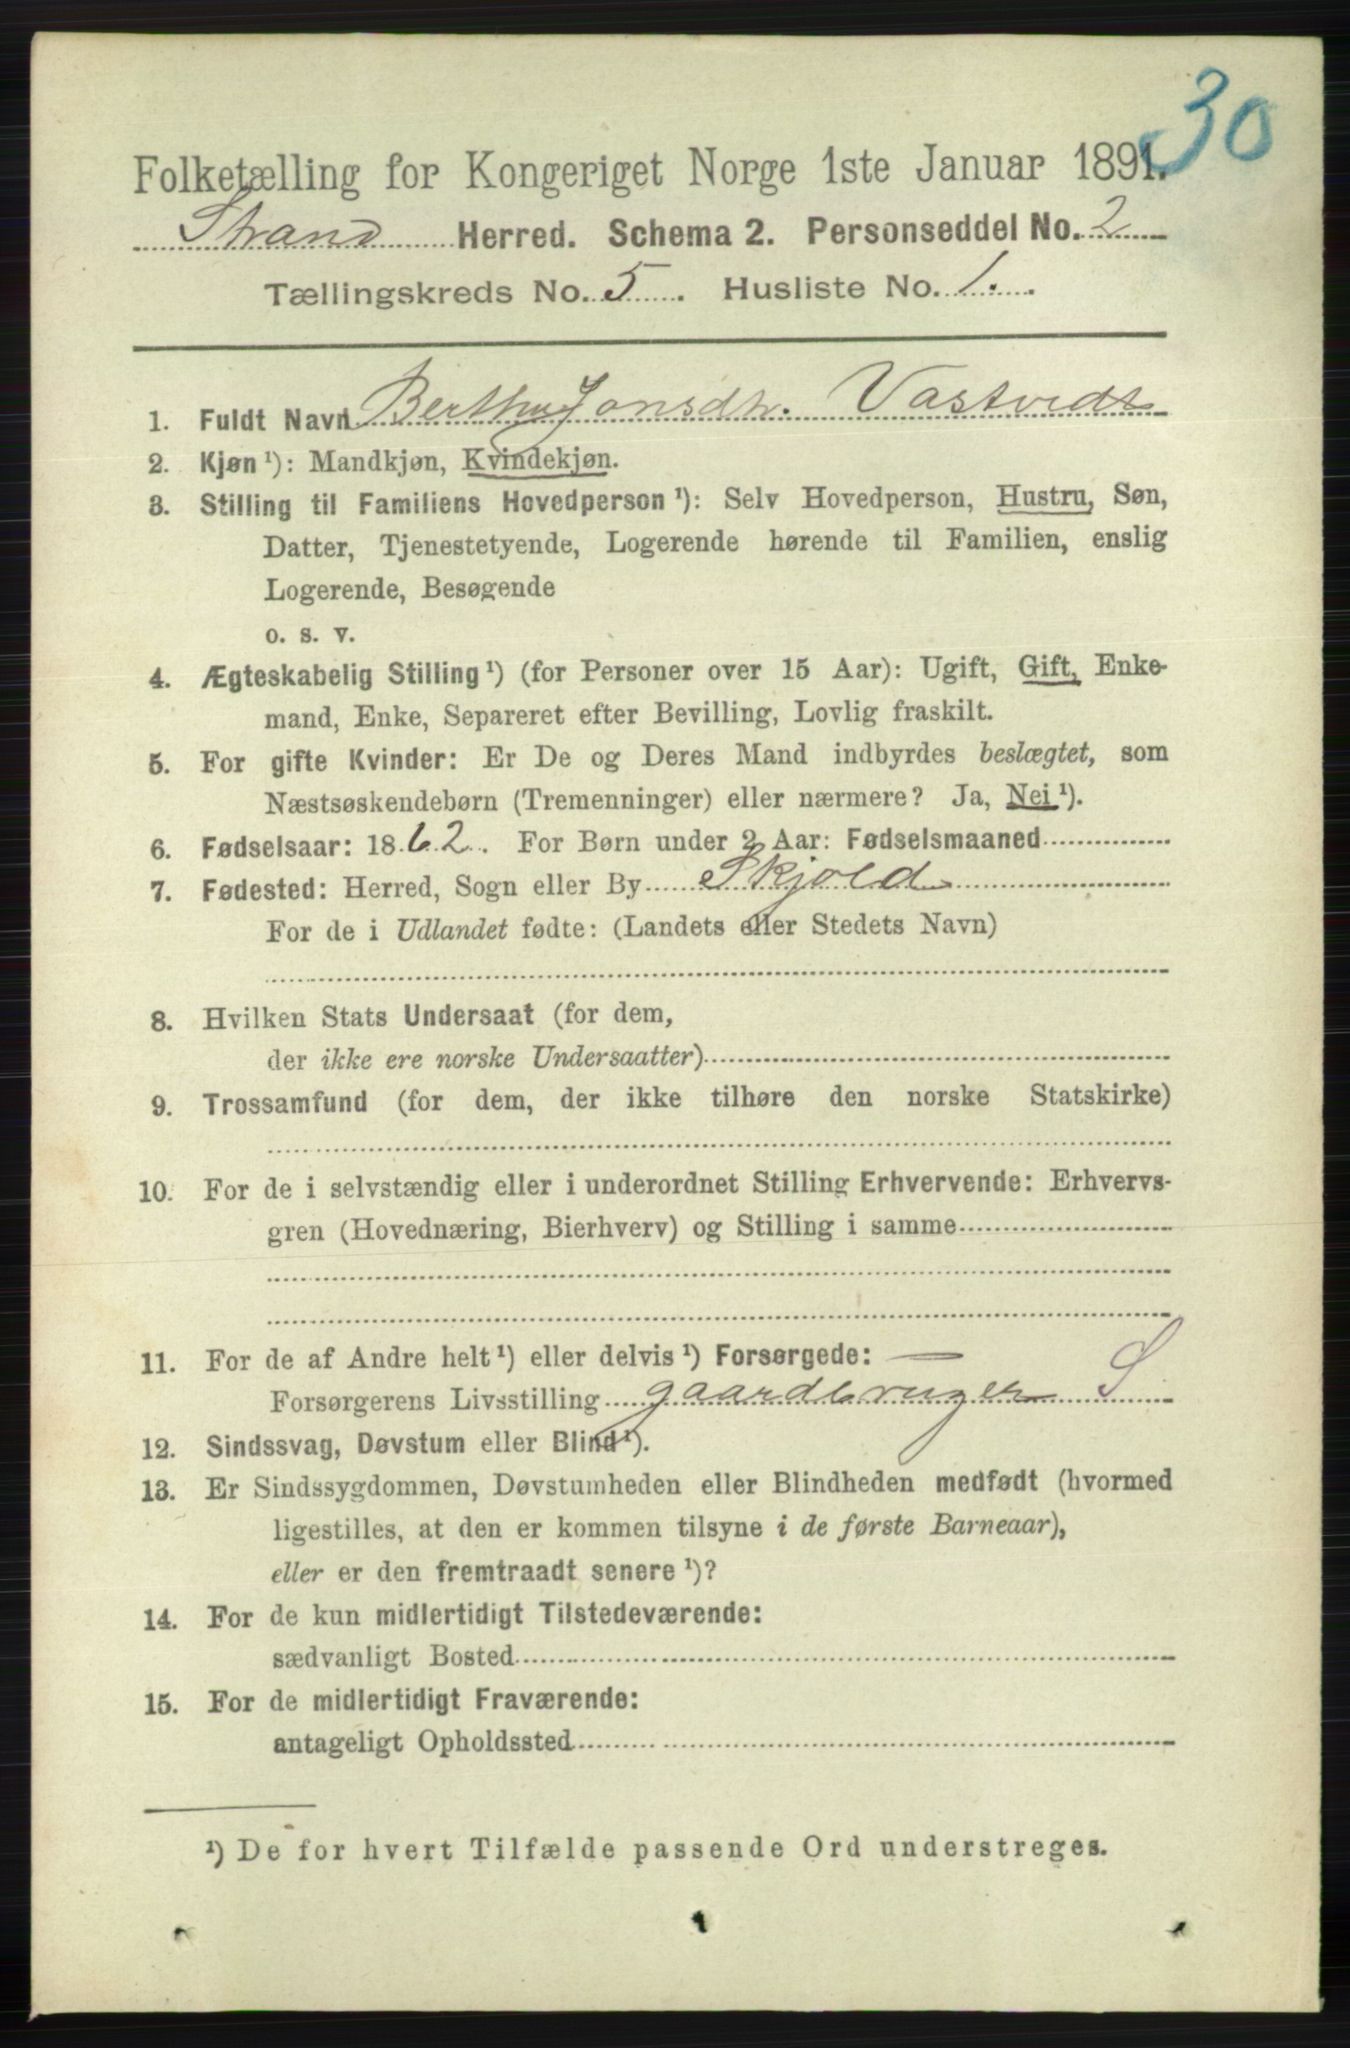 30
Folketælling for Kongeriget Norge 1ste Januar 1891.
Strand Herred. Schema 2. Personseddel No. 2
Tællingskreds No. 5. Husliste No. 1.
1. Fuldt Navn Bertha Jonsdtr. Vastvedt
2. Kjøn ¹): Mandkjøn, Kvindekjøn.
3. Stilling til Familiens Hovedperson ¹): Selv Hovedperson, Hustru, Søn,
Datter, Tjenestetyende, Logerende hørende til Familien, enslig
Logerende, Besøgende
o. s. v.
4. Ægteskabelig Stilling ¹) (for Personer over 15 Aar): Ugift, Gift, Enke-
mand, Enke, Separeret efter Bevilling, Lovlig fraskilt.
5. For gifte Kvinder: Er De og Deres Mand indbyrdes beslægtet, som
Næstsøskendebørn (Tremenninger) eller nærmere? Ja, Nei ¹).
6. Fødselsaar: 1862. For Børn under 2 Aar: Fødselsmaaned
7. Fødested: Herred, Sogn eller By Skjold
For de i Udlandet fødte: (Landets eller Stedets Navn)
8. Hvilken Stats Undersaat (for dem,
der ikke ere norske Undersaatter)
9. Trossamfund (for dem, der ikke tilhøre den norske Statskirke)
10. For de i selvstændig eller i underordnet Stilling Erhvervende: Erhvervs-
gren (Hovednæring, Bierhverv) og Stilling i samme
11. For de af Andre helt ¹) eller delvis ¹) Forsørgede: —
Forsørgerens Livsstilling gaardbruger S
12. Sindssvag, Døvstum eller Blind ¹).
13. Er Sindssygdommen, Døvstumheden eller Blindheden medfødt (hvormed
ligestilles, at den er kommen tilsyne i de første Barneaar),
eller er den fremtraadt senere ¹)?
14. For de kun midlertidigt Tilstedeværende:
sædvanligt Bosted
15. For de midlertidigt Fraværende:
antageligt Opholdssted
¹) De for hvert Tilfælde passende Ord understreges.